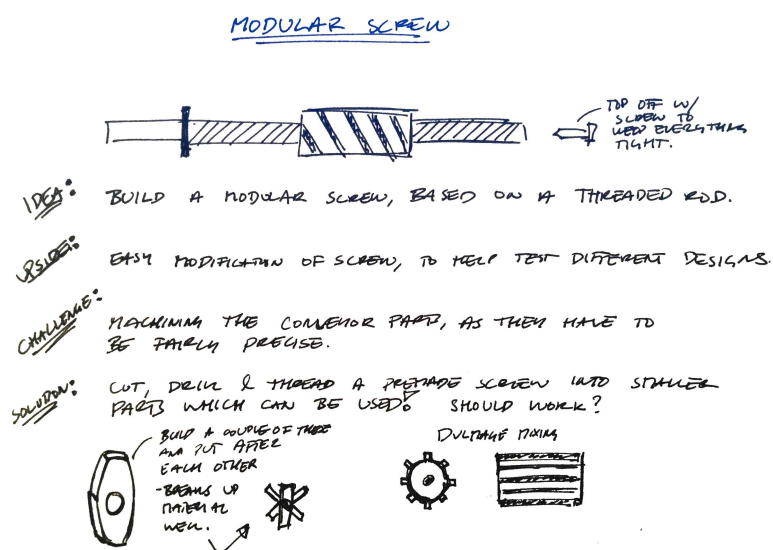 MODULAR SCREW
TOP OFF W/
SCREW TO
KEEP EVERYTHING
TIGHT.
IDEA: BUILD A MODULAR SCREW, BASED ON A THREADED ROD.
UPSIDE: EASY MODIFICATION OF SCREW, TO HELP TEST DIFFERENT DESIGNS.
CHALLENGE: MACHINING THE CONVEYOR PARTS, AS THEY HAVE TO
BE FAIRLY PRECISE.
SOLUTION: CUT, DRILL & THREAD A PREMADE SCREW INTO SMALLER
PARTS WHICH CAN BE USED! SHOULD WORK?
BUILD A COUPLE OF THESE
AND PUT AFTER
EACH OTHER
- BREAKS UP
MATERIAL
WELL.
DULMAGE MIXING